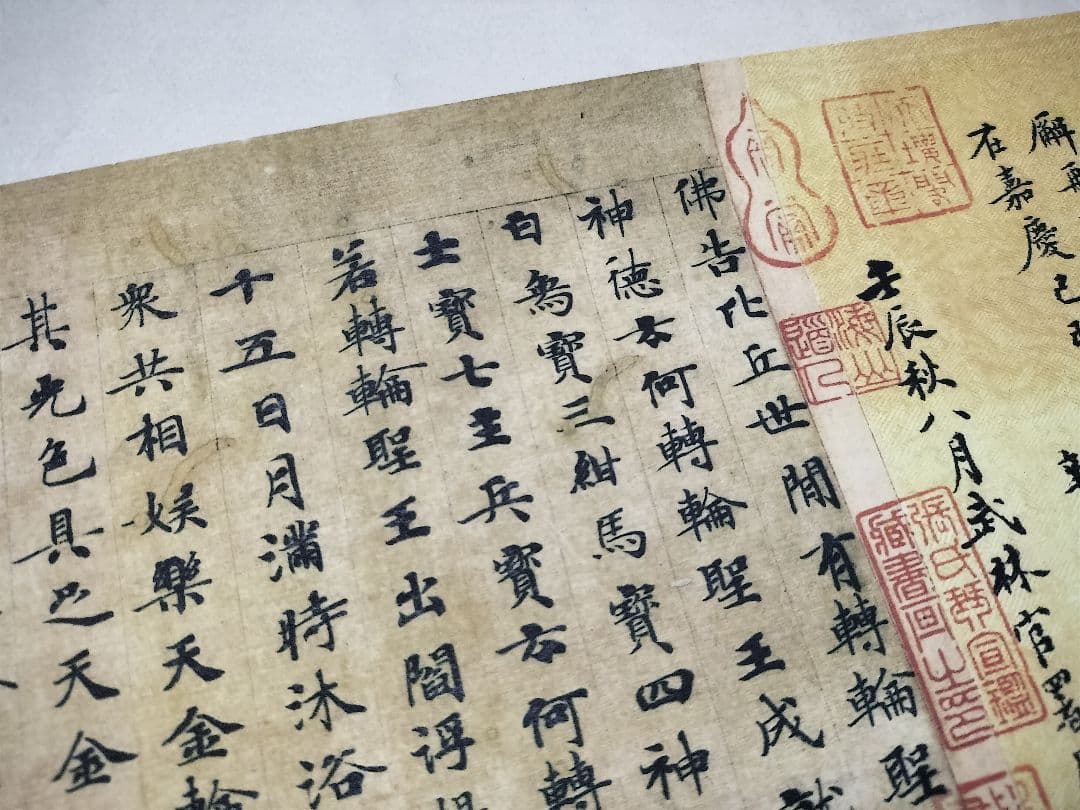 在嘉慶己
壬辰秋八月武林官
佛告比丘世間有轉輪聖
神德云何轉輪聖王成就
白象寶三紺馬寶四神
士寶七主兵寶云何轉
若轉輪聖王出閻浮提
十五日月滿時沐浴
眾共相娛樂天金輪
其光色具足天金